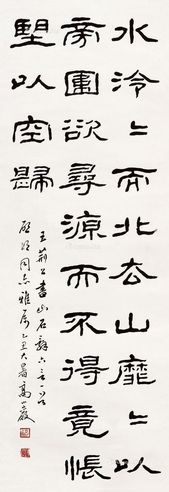 水泠〻而北去山靡〻以
旁圍欲尋源而不得竟悵
望以空歸
王荊公書山石辭六言一首
啟明同志雅屬 乙丑大暑高巖